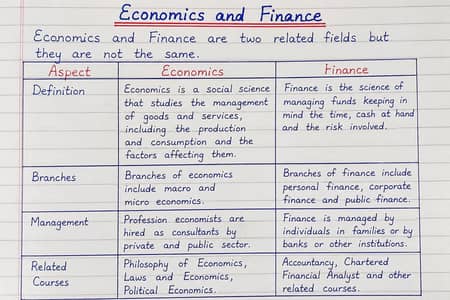 Economics and Finance
Economics and Finance are two related fields but
they are not the same.
Aspect Economics Finance
Definition
Economics is a social science
that studies the management
of goods and services,
including the production
and consumption and the
factors affecting them.
Finance is the science of
managing funds keeping in
mind the time, cash at hand
and the risk involved.
Branches
Branches of economics
include macro and
micro economics.
Branches of finance include
personal finance, corporate
finance and public finance.
Management
Profession economists are
hired as consultants by
private and public sector.
Finance is managed by
individuals in families or by
banks or other institutions.
Related
Courses
Philosophy of Economics,
Laws and Economics,
Political Economics.
Accountancy, Chartered
Financial Analyst and other
related courses.